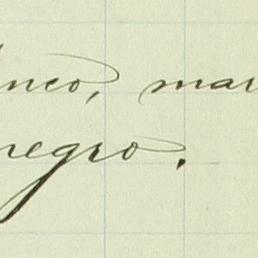 nco, mar
negro.